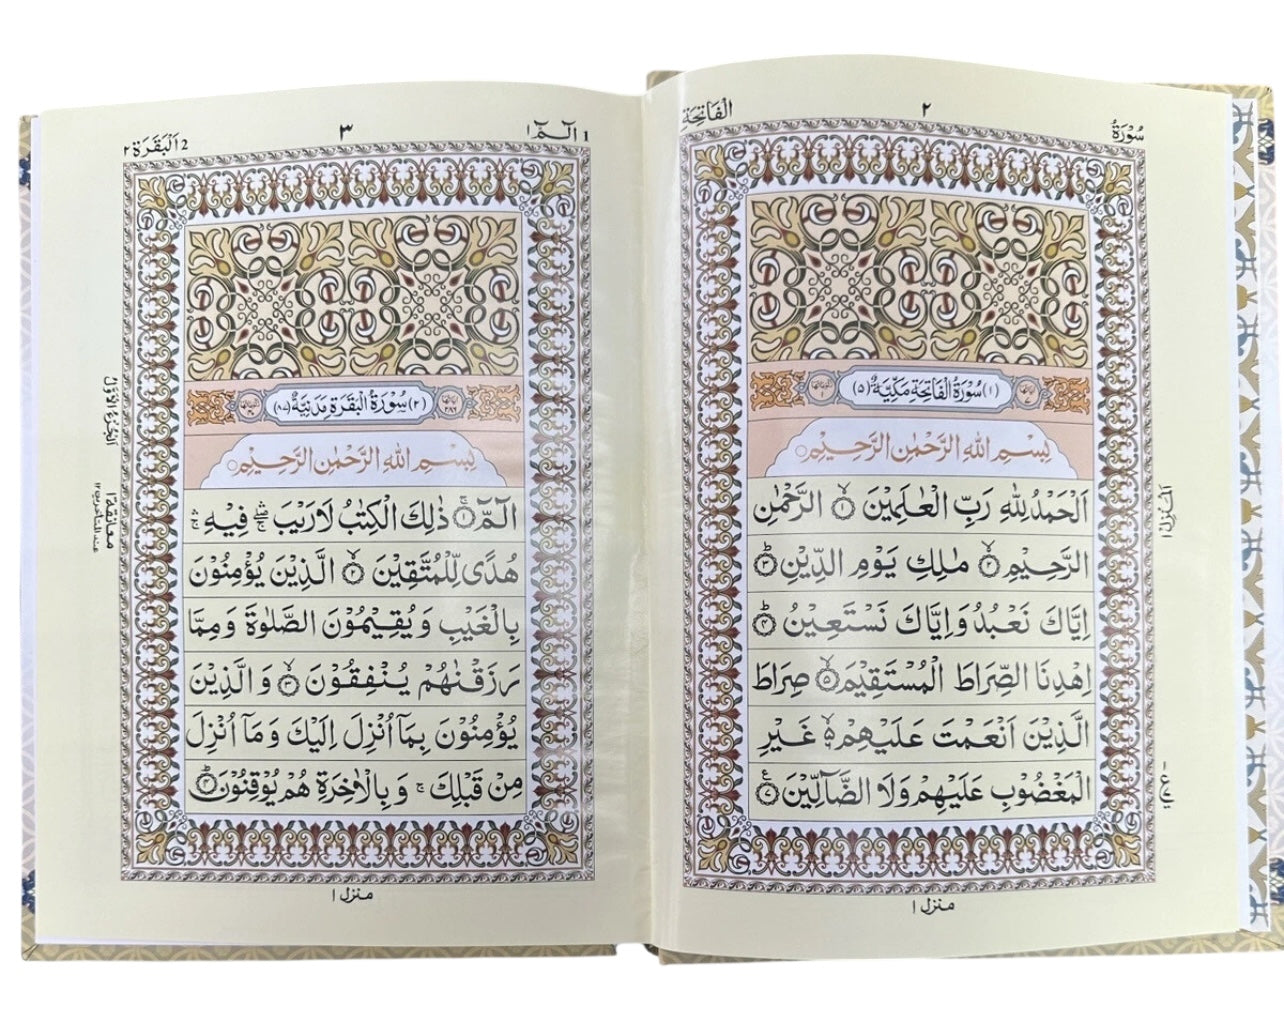 سُوْرَةُ
٢
الْفَاتِحَة
(١) سُوْرَةُ الْفَاتِحَةِ مَكِّيَّةٌ (٥)
بِسْمِ اللهِ الرَّحْمٰنِ الرَّحِيْمِ
اَلْحَمْدُ لِلّٰهِ رَبِّ الْعٰلَمِيْنَ ۙ﴿١﴾ الرَّحْمٰنِ
الرَّحِيْمِ ۙ﴿٢﴾ مٰلِكِ يَوْمِ الدِّيْنِ ؕ﴿٣﴾
اِيَّاكَ نَعْبُدُ وَاِيَّاكَ نَسْتَعِيْنُ ؕ﴿٤﴾
اِهْدِنَا الصِّرَاطَ الْمُسْتَقِيْمَ ۙ﴿٥﴾ صِرَاطَ
الَّذِيْنَ اَنْعَمْتَ عَلَيْهِمْ ۙ۬ غَيْرِ
الْمَغْضُوْبِ عَلَيْهِمْ وَلَا الضَّآلِّيْنَ ﴿٧﴾
اَلْمَنْزِل ١
منزل ١
1 الٓمّٓ ١
٣
2 اَلْبَقَرَة ٢
(٢) سُوْرَةُ الْبَقَرَةِ مَدَنِيَّةٌ (٨٧)
بِسْمِ اللهِ الرَّحْمٰنِ الرَّحِيْمِ
الٓمّٓ ۚ﴿١﴾ ذٰلِكَ الْكِتٰبُ لَا رَيْبَ ۛۚ فِيْهِ ۛ
هُدًى لِّلْمُتَّقِيْنَ ۙ﴿٢﴾ الَّذِيْنَ يُؤْمِنُوْنَ
بِالْغَيْبِ وَيُقِيْمُوْنَ الصَّلٰوةَ وَمِمَّا
رَزَقْنٰهُمْ يُنْفِقُوْنَ ۙ﴿٣﴾ وَالَّذِيْنَ
يُؤْمِنُوْنَ بِمَآ اُنْزِلَ اِلَيْكَ وَمَآ اُنْزِلَ
مِنْ قَبْلِكَ ۚ وَبِالْاٰخِرَةِ هُمْ يُوْقِنُوْنَ ؕ﴿٤﴾
اَلْجُزْءُ الْاَوَّلُ
معانقة ١
عند المتأخرين ١٢
منزل ١